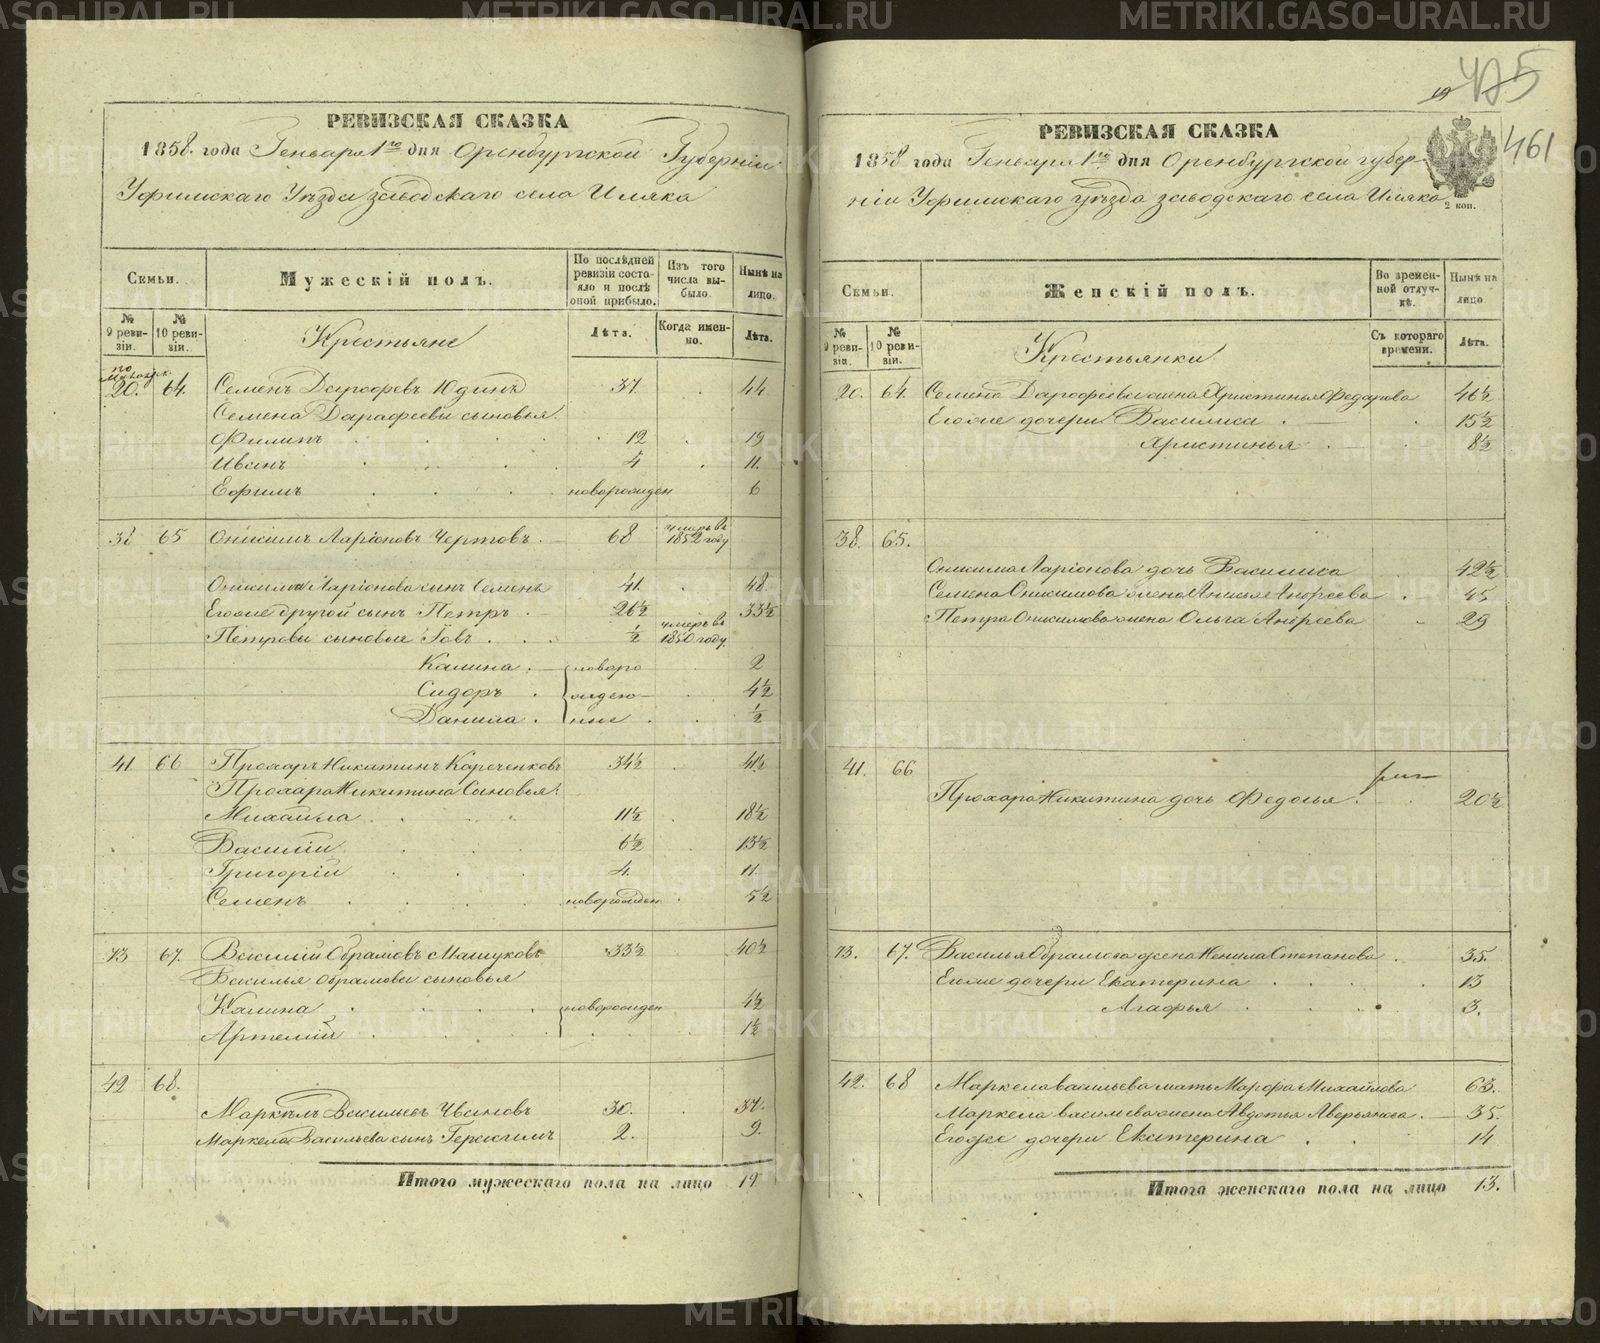 РЕВИЗСКАЯ СКАЗКА
1858. года Генваря 1го дня Оренбургской Губерніи
Уфимскаго Уѣзда заводскаго села Иляка
Семьи.
Мужескій полъ.
По послѣдней ревизіи состояло и послѣ оной прибыло.
Изъ того числа выбыло.
Нынѣ на лицо.
№ 9 ревизіи.
№ 10 ревизіи.
Крестьяне
Лѣта.
Когда именно.
Лѣта.
20. 64. Семенъ Дарофеевъ Юдинъ 37. 44
Семена Дарафеева сыновья:
Филипъ 12 19
Иванъ 4 11.
Ефимъ новорожден 6
38 65 Онисимъ Ларіоновъ Чертовъ 68 умеръ въ 1852 году
Онисима Ларіонова сынъ Семенъ 41. 48.
Егоже другой сынъ Петръ 26½ 33½
Петровы сыновья Іовъ ½ умеръ въ 1850 году.
Калина новоро 2
Сидоръ жден 4½
Данила ные ½
41 66 Прохаръ Никитинъ Кореченковъ 34½ 41½
Прохара Никитина Сыновья:
Михайла 11½ 18½
Василій 6½ 13½
Григорій 4. 11.
Семенъ новорожден. 5½
73 67. Василій Обрамовъ Машуковъ 33½ 40½
Василья Обрамова сыновья
Калина новорожден 4½
Артемій 1½
42 68.
Маркелъ Васильевъ Ивановъ 30. 37.
Маркела Васильева сынъ Герасимъ 2. 9.
Итого мужескаго пола на лицо 19
475
461
РЕВИЗСКАЯ СКАЗКА
1858 года Генваря 1го дня Оренбургской губер-
ніи Уфимскаго уѣзда заводскаго села Иляка
2 коп.
Семьи.
Женскій полъ.
Во временной отлучкѣ.
Нынѣ на лицо.
№ 9 ревизіи.
№ 10 ревизіи.
Крестьянки
Съ котораго времени.
Лѣта.
20. 64. Семена Дарофеева жена Христинья Федарова 46½
Егоже дочери Василиса 15½
Христинья 8½
38. 65.
Онисима Ларіонова дочь Василиса 42½
Семена Онисимова жена Анисья Андреева 45
Петра Онисимова жена Ольга Андреева 29
41. 66
Прохара Никитина дочь Федосья 20½
73. 67. Василья Обрамова жена Ненила Степанова 35.
Егоже дочери Екатерина 13
Агафья 3.
42. 68 Маркела васильева мать Марфа Михайлова 63.
Маркела васильева жена Авдотья Аверьянова 35.
Егоже дочери Екатерина 14
Итого женскаго пола на лицо 13.
METRIKI.GASO-URAL.RU